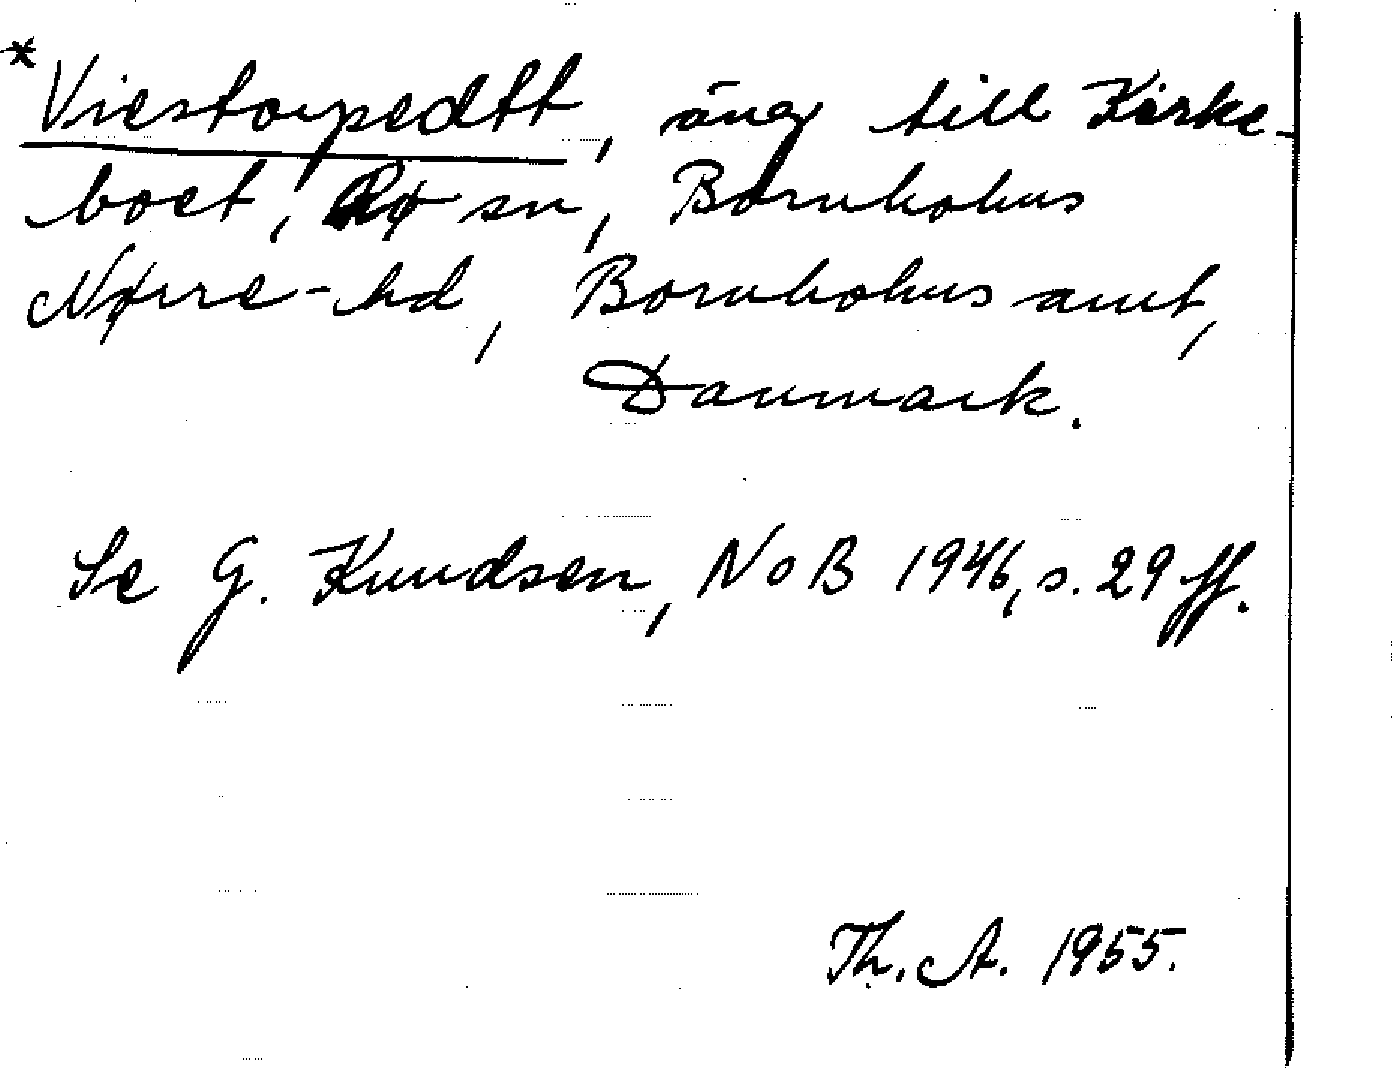 *Viestorpedtt, äng till Kirke-
boet, Rø sn, Bornholms
Nørre-hd, Bornholms amt,
Danmark.
Se G. Knudsen, NoB 1946, s. 29 ff.
Th. A. 1955.